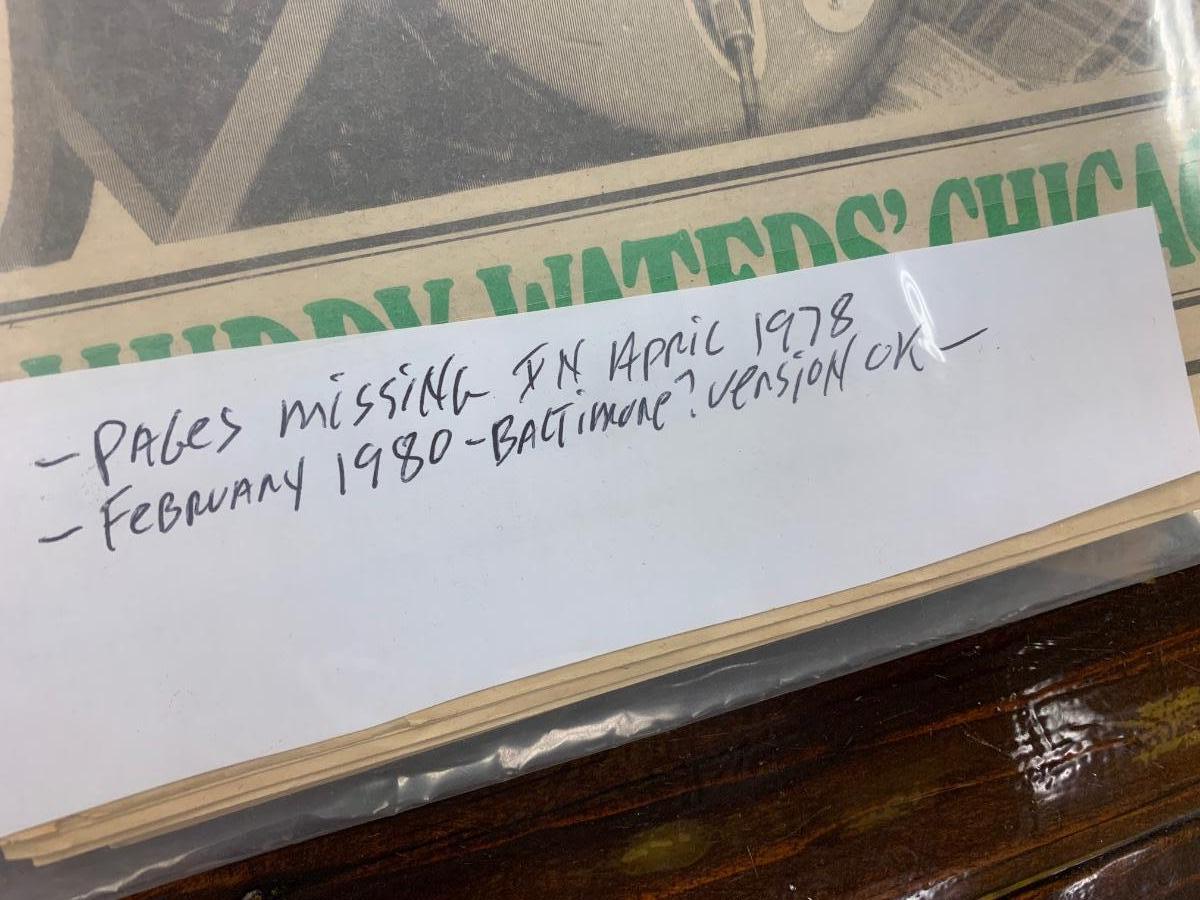 MUDDY WATERS' CHICAG
– PAGES missiNG IN APRIL 1978
– FEBRUARY 1980 – BALTIMORE? VERSION OK –